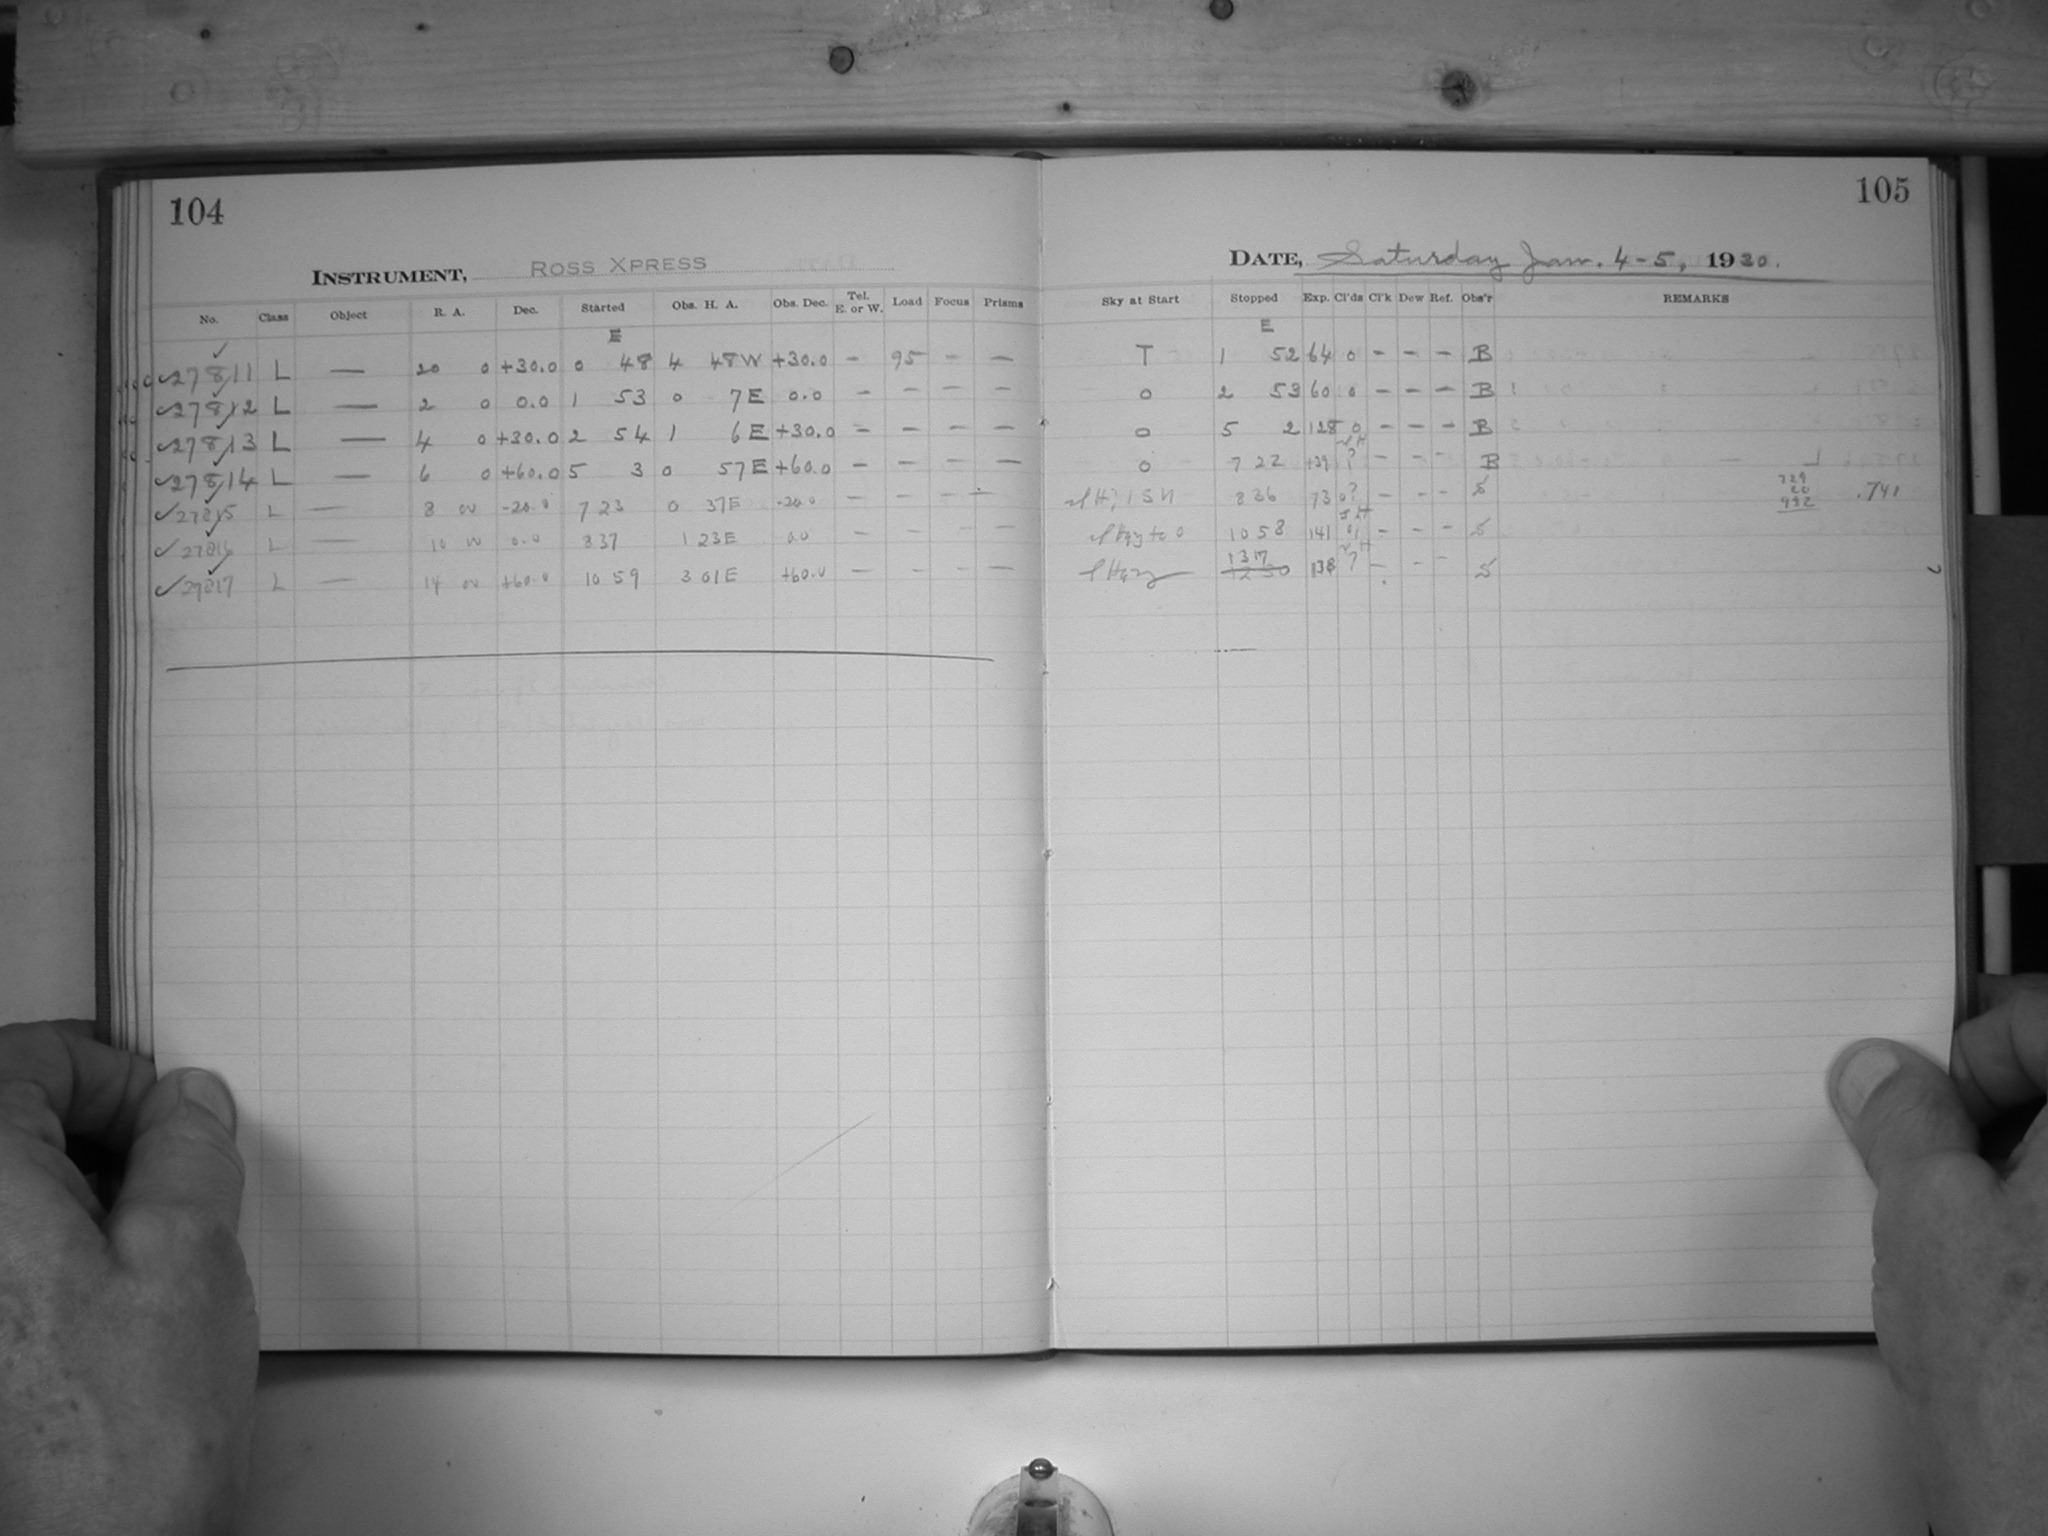 104
105
INSTRUMENT, ROSS XPRESS
DATE, Saturday Jan. 4-5, 1930.
No. Class Object R. A. Dec. Started Obs. H. A. Obs. Dec. Tel. E. or W. Load Focus Prisms Sky at Start Stopped Exp. Cl'ds Cl'k Dew Ref. Obs'r REMARKS
E E
27811 L — 20 0 +30.0 0 48 4 48W +30.0 — 95 — — T 1 52 64 0 — — — B
27812 L — 2 0 0.0 1 53 0 7E 0.0 — — — — 0 2 53 60 0 — — — B
27813 L — 4 0 +30.0 2 54 1 6E +30.0 — — — — 0 5 2 128 0 — — — B
27814 L — 6 0 +60.0 5 3 0 57E +60.0 — — — — 0 7 22 139 ? — — — B
27815 L — 8 00 -20.0 7 23 0 37E -20.0 — — — — 8 36 73 0? — — — S 729 20 .741
27816 L — 10 00 0.0 8 37 1 23E 0.0 — — — — 10 58 141 — — — S
27817 L — 14 00 +60.0 10 59 3 01E +60.0 — — — — 13 17 138 ? — — — S